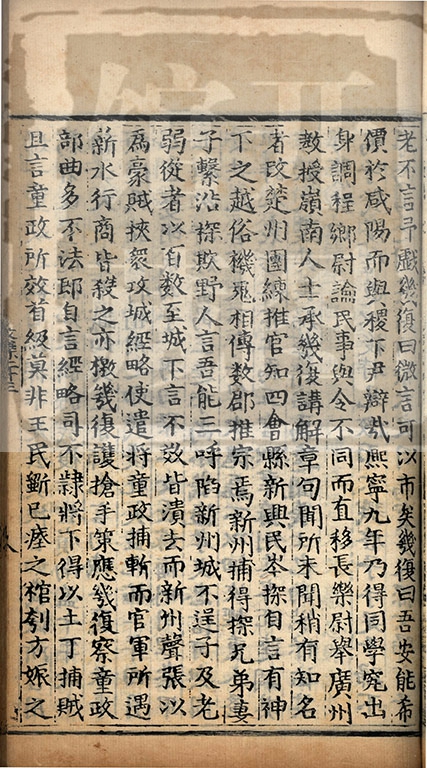 老不言予戲幾復曰微言可以市矣幾復曰吾安能希
價於咸陽而與稷下尹辯哉熙寧九年乃得同學究出
身調程鄉尉諭民事與令不同而直移長樂尉舉廣州
教授嶺南人士承幾復講解章句聞所未聞稍有知名
者改楚州團練推官知四會縣新興民岑探自言有神
下之越俗禨鬼相傳數郡推宗焉新州捕得探兄弟妻
子繫沿探欺野人言吾能三呼陷新州城不逞子及老
弱從者以百數至城下言不效皆潰去而新州聲張以
爲豪賊挾衆攻城經略使遣將童政捕斬而官軍所遇
薪水行商皆殺之亦檄幾復護搶手策應幾復察童政
部曲多不法邸自言經略司不隸將下得以土丁捕賊
且言童政所效首級莫非王民斷已瘞之棺刳方娠之